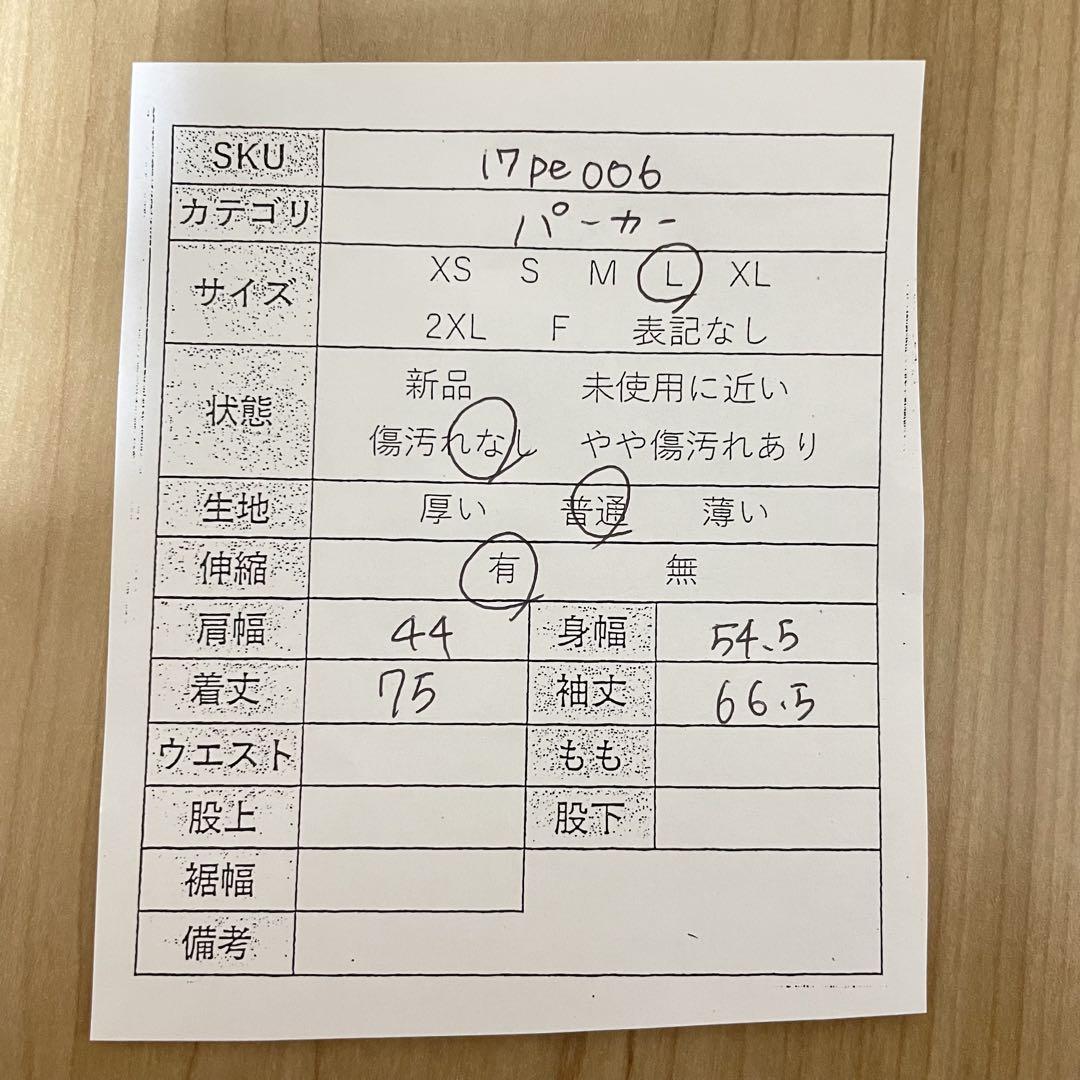 SKU 17pe006
カテゴリ パーカー
サイズ XS S M L XL
2XL F 表記なし
状態 新品 未使用に近い
傷汚れなし やや傷汚れあり
生地 厚い 普通 薄い
伸縮 有 無
肩幅 44 身幅 54.5
着丈 75 袖丈 66.5
ウエスト もも
股上 股下
裾幅
備考